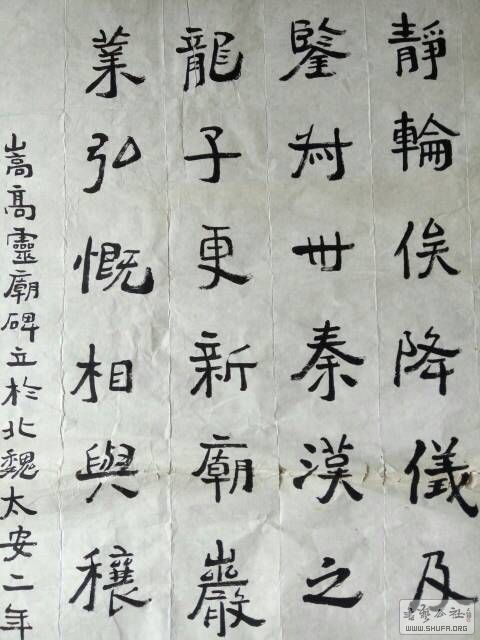 靜輪俟降儀及
鑒尌丗秦漢之
龍子更新廟巖
業弘慨相與穰
嵩高靈廟碑立於北魏太安二年
书艺公社
WWW.SHUFA.ORG